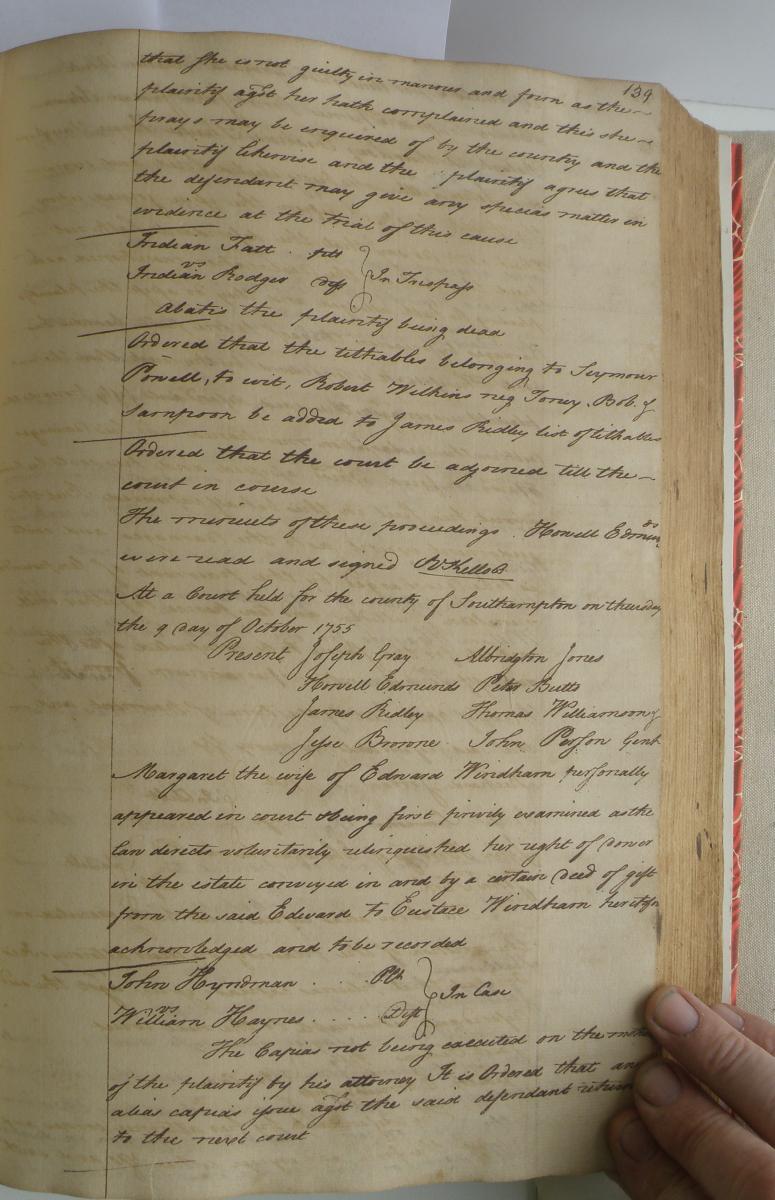 139
that she is not guilty in manner and form as the
plaintif agst her hath complained and this she
prays may be enquired of by the country and the
plaintif likewise and the plaintif agrees that
the defendant may give any special matter in
evidence at the trial of this cause
Indian Fatt . plt
vs } In Trespass
Indian Rodger deft
abates the plaintif being dead
Ordered that the tithables belonging to Seymour
Powell, to wit, Robert Wilkins neg Toney, Bob &
Sampson be added to James Ridley list of tithables
Ordered that the court be adjorned till the
court in course
The minuets of these proceedings . Howell Edmunds
were read and signed
At a Court held for the county of Southampton on thursday
the 9 day of October 1755
Present Joseph Gray Albrighton Jones
Howell Edmunds Peter Butts
James Ridley Thomas Williamson &
Jesse Browne John Person Gent
Margaret the wife of Edward Windham personally
appeared in court & being first privily examined as the
law directs voluntarily relinquished her right of dower
in the estate conveyed in and by a certain deed of gift
from the said Edward to Eustace Windham heretofor
acknowledged and to be recorded
John Hyndman . . . . Plt
vs } In Case
William Haynes . . . . Deft
The Capias not being executed on the motion
of the plaintif by his attorney It is Ordered that an
alias capias issue agst the said defendant return
to the next court